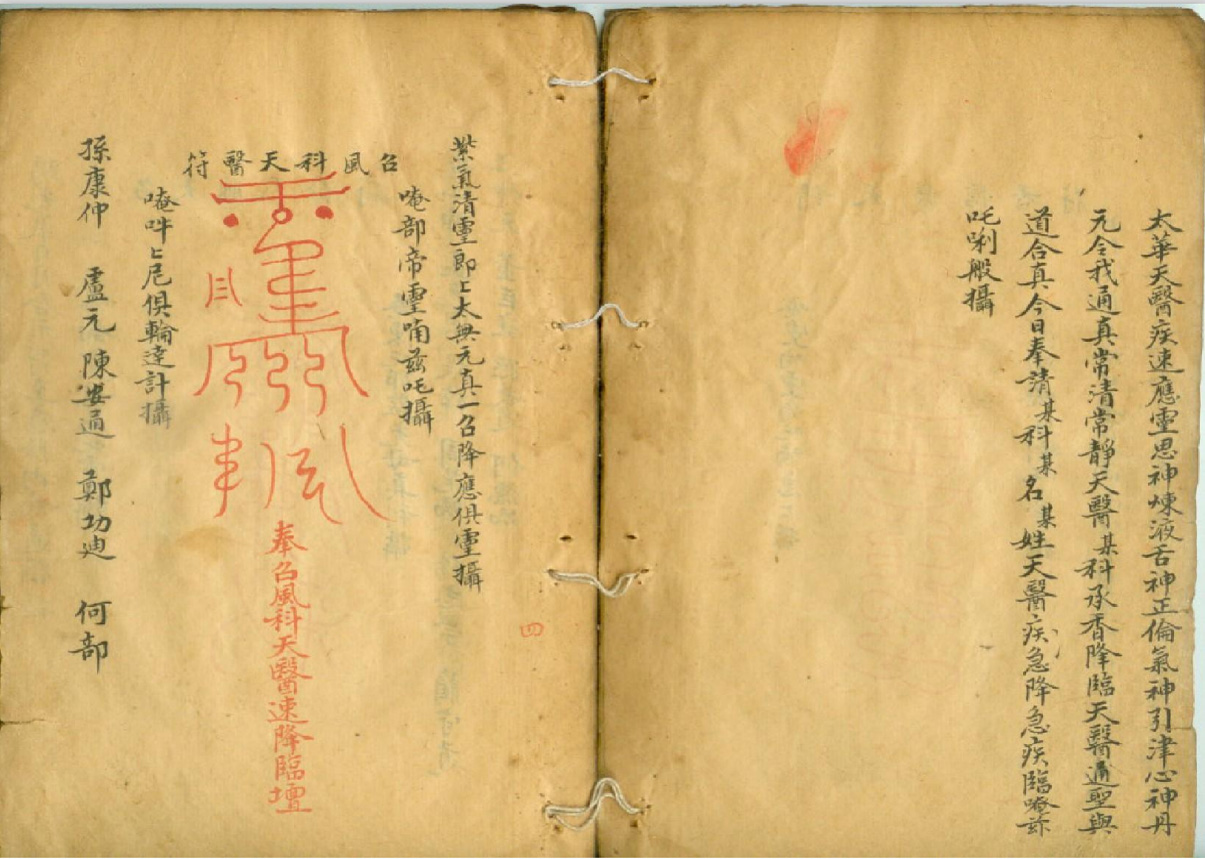 太華天醫疾速應靈思神煉液舌神正倫氣神引津心神丹
元令我通真常清常靜天醫某科承香降臨天醫通聖與
道合真今日奉請某科某名某姓天醫疾急降急疾臨唵蘇
吒唎般攝
紫氣清靈郎〻太無元真一召降應俱靈攝
唵部帝靈喃茲吒攝
召風科天醫符
奉召風科天醫速降臨壇
唵吽〻尼俱輪達計攝
孫康仲 盧元 陳安通 鄭功迪 何部
四